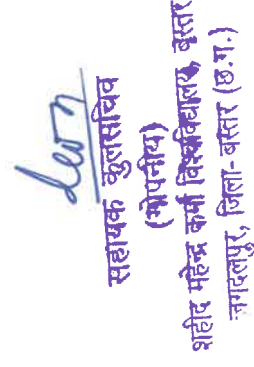 सहायक कुलसचिव
(गोपनीय)
शहीद महेन्द्र कर्मा विश्वविद्यालय, बस्तर
जगदलपुर, जिला-बस्तर (छ.ग.)